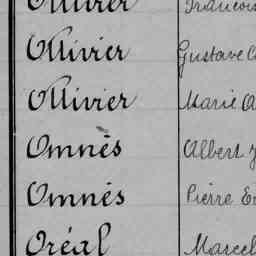 Ollivier François
Ollivier Gustave
Ollivier Marie
Omnès Albert
Omnès Pierre
Oréal Marcel